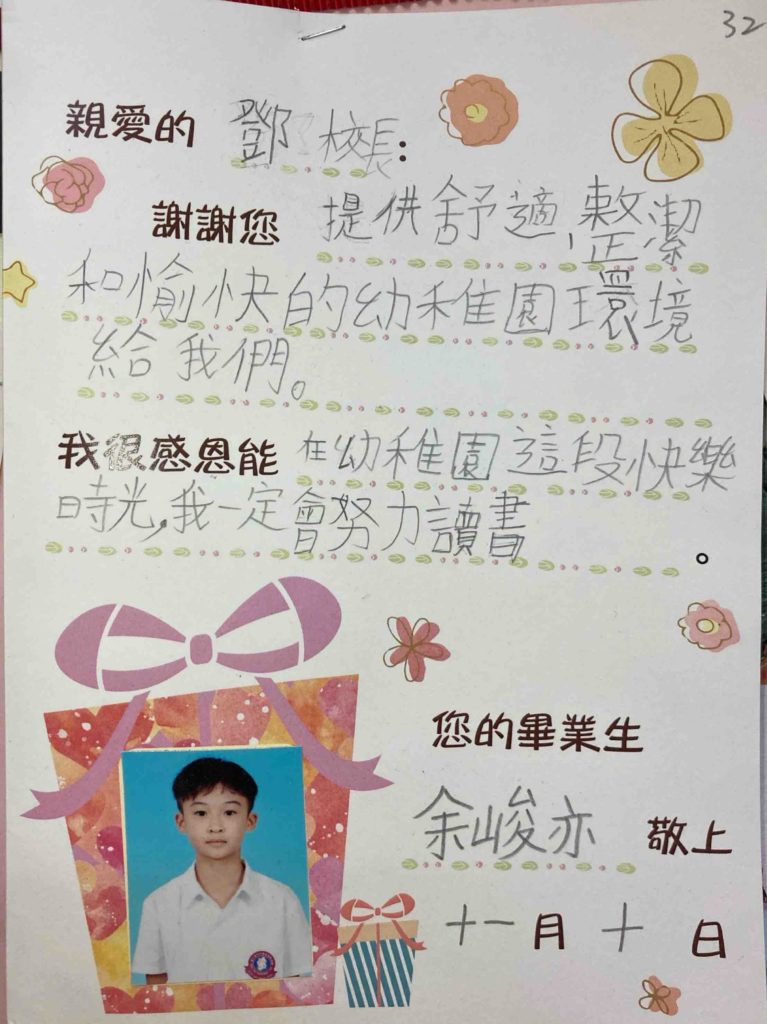 32
親愛的 鄧校長：
謝謝您 提供舒適,整潔
和愉快的幼稚園環境
給我們。
我很感恩能 在幼稚園這段快樂
時光,我一定會努力讀書
。
您的畢業生
余峻亦 敬上
十一月十日